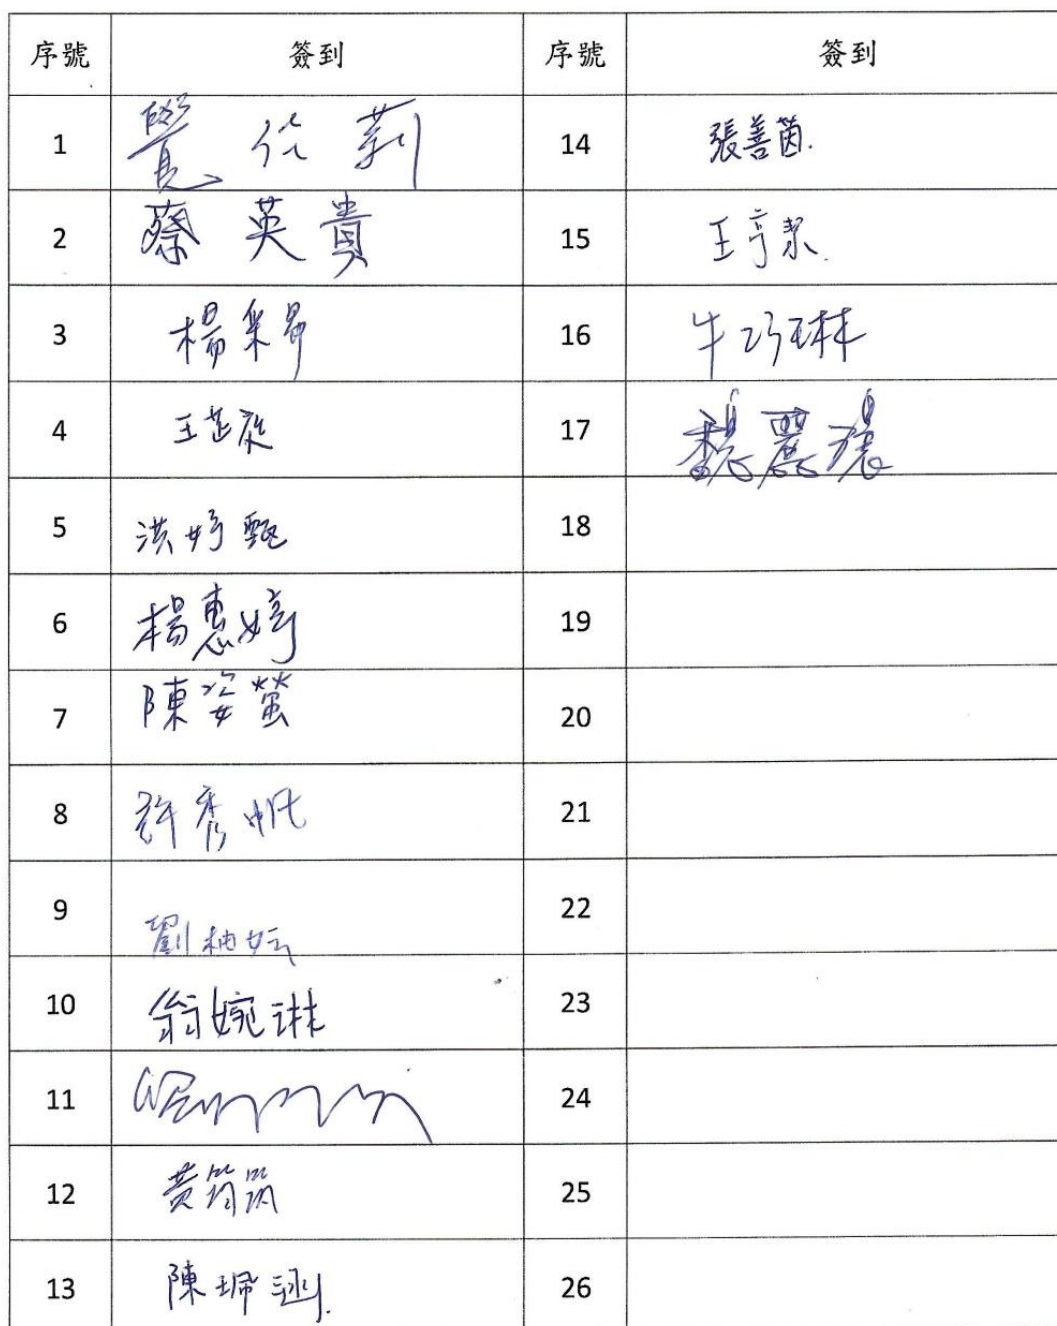 序號 簽到 序號 簽到
1 14 張善茵.
2 蔡英貴 15 王亭潔.
3 楊 16 牛巧琳
4 王 17 魏麗
5 洪妤甄 18
6 楊惠婷 19
7 陳姿螢 20
8 許秀帆 21
9 劉柚妘 22
10 翁婉琳 23
11 24
12 黃筠筑 25
13 陳珮涵. 26